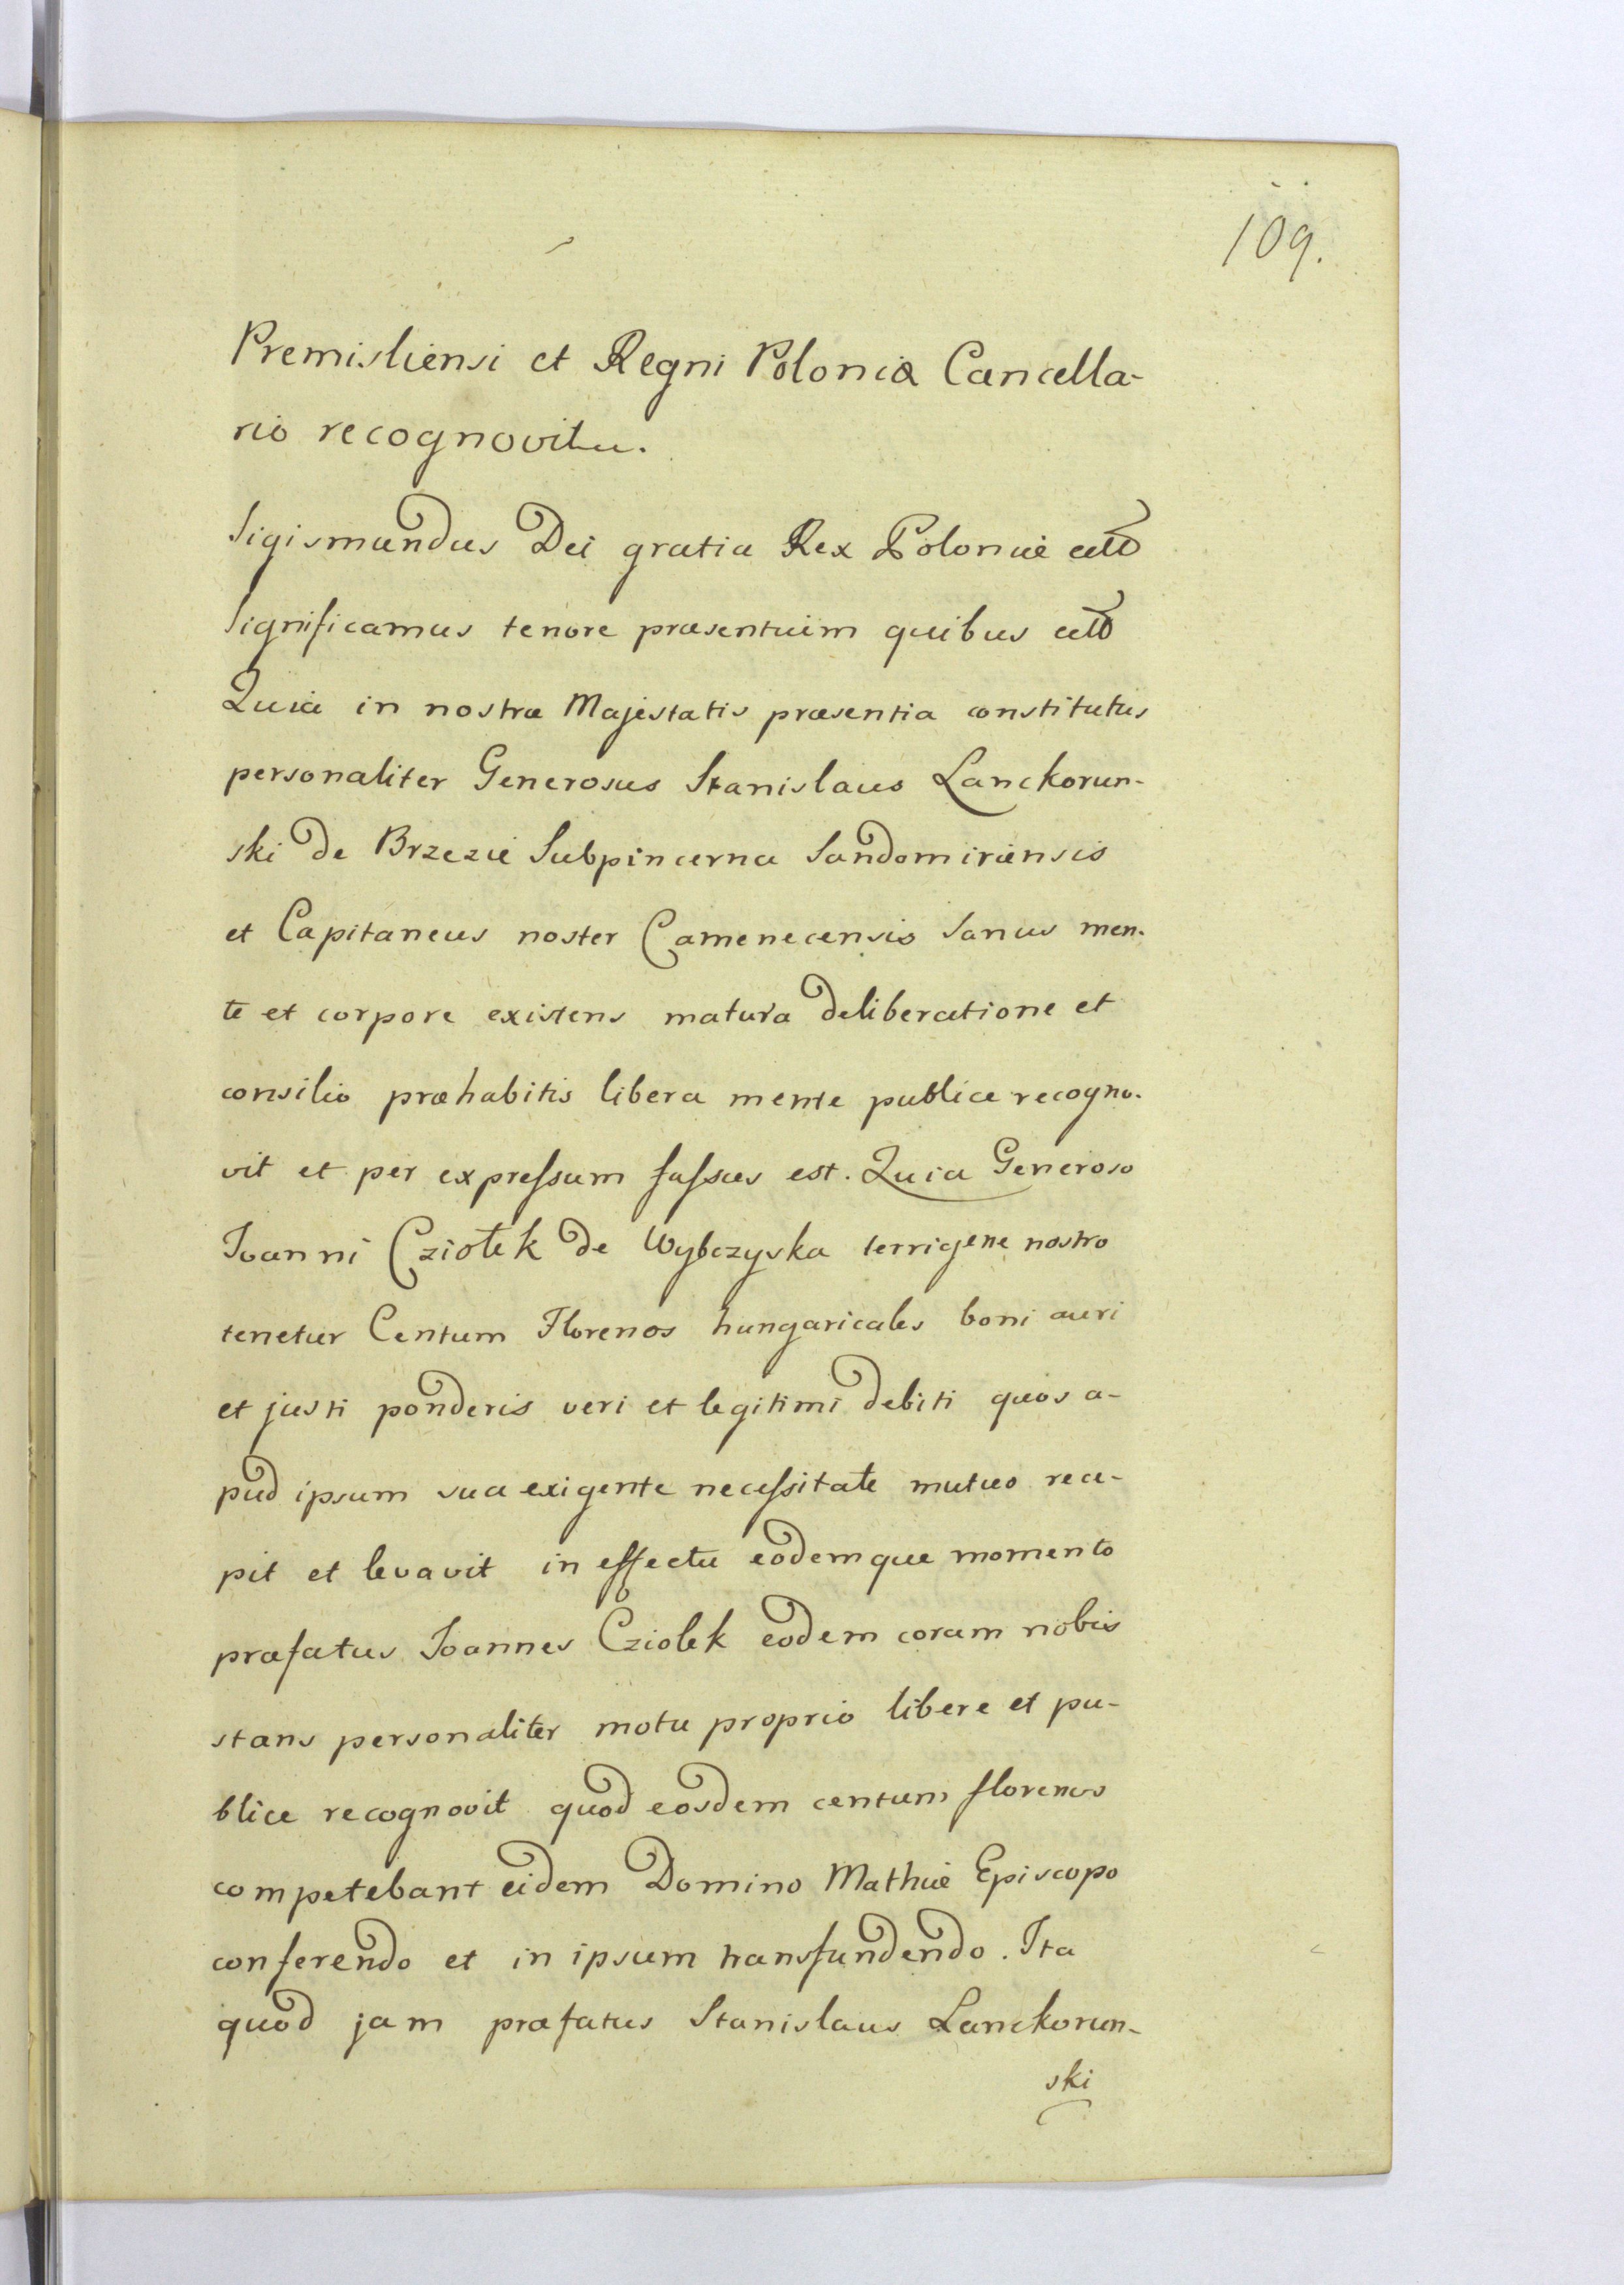 109.
Premisliensi et Regni Poloniæ Cancella-
rio recognovit.
Sigismundus Dei gratia Rex Poloniæ
Significamus tenore præsentium quibus
Quia in nostra Majestatis præsentia constitutus
personaliter Generosus Stanislaus Lanckorun-
ski de Brzezie Subpincerna Sandomiriensis
et Capitaneus noster Camenecensis Sanus men-
te et corpore existens matura deliberatione et
consilio præhabitis libera mente publice recogno-
vit et per expressum fassus est. Quia Generoso
Ioanni Cziołek de Wybczyska terrigene nostro
tenetur Centum Florenos hungaricales boni auri
et justi ponderis veri et legitimi debiti quos a-
pud ipsum sua exigente necessitate mutuo rece-
pit et levavit in effectu eodemque momento
præfatus Ioannes Cziolek eodem coram nobis
stans personaliter motu proprio libere et pu-
blice recognovit quod eosdem centum florenos
competebant eidem Domino Mathiæ Episcopo
conferendo et in ipsum transfundendo. Ita
quod jam præfatus Stanislaus Lanckorun-
ski